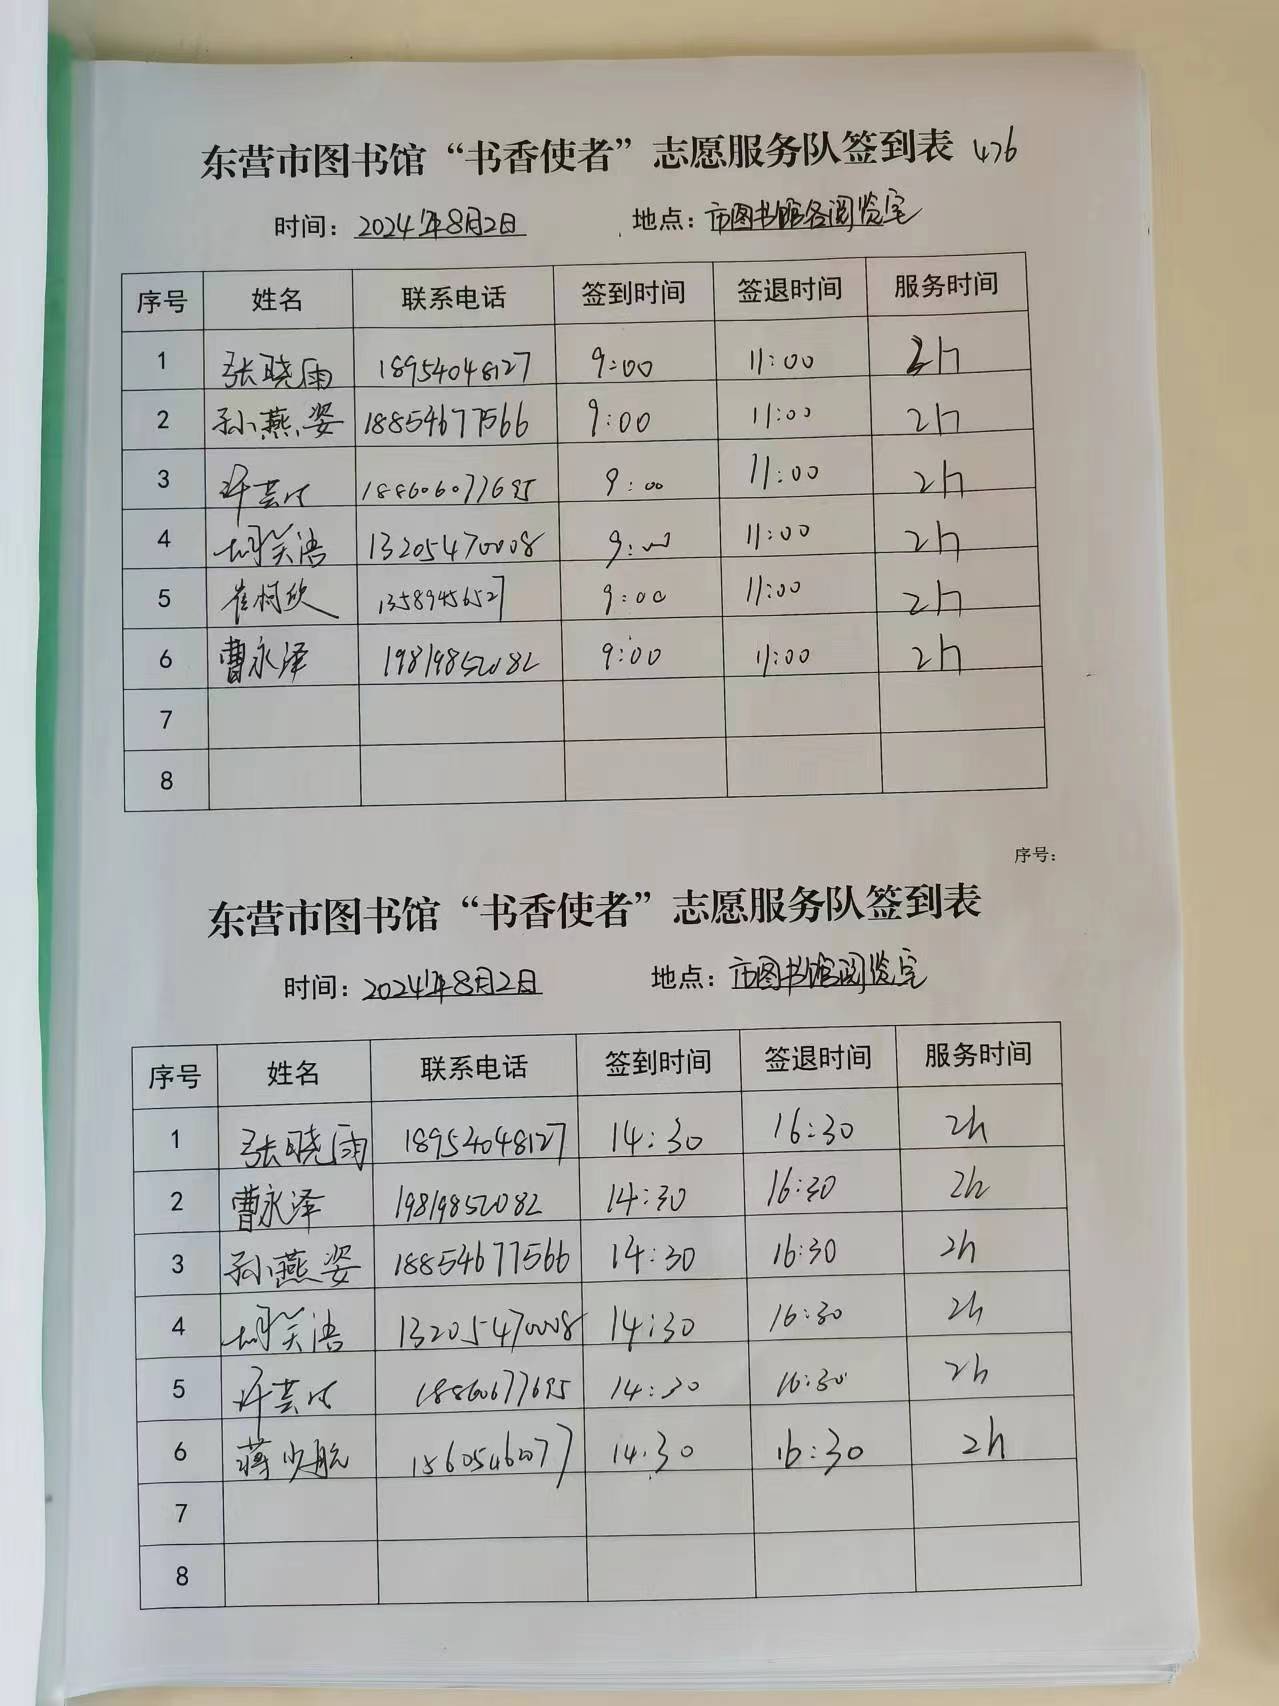 东营市图书馆“书香使者”志愿服务队签到表 476
时间：2024年8月2日 地点：市图书馆各阅览室
序号 姓名 联系电话 签到时间 签退时间 服务时间
1 张晓雨 18954048127 9:00 11:00 2h
2 孙燕姿 18854677566 9:00 11:00 2h
3 许芸 188606077695 9:00 11:00 2h
4 胡笑语 13205470008 9:00 11:00 2h
5 崔柯欣 13589456527 9:00 11:00 2h
6 曹永泽 19819852082 9:00 11:00 2h
7
8
序号：
东营市图书馆“书香使者”志愿服务队签到表
时间：2024年8月2日 地点：市图书馆阅览室
序号 姓名 联系电话 签到时间 签退时间 服务时间
1 张晓雨 18954048127 14:30 16:30 2h
2 曹永泽 19819852082 14:30 16:30 2h
3 孙燕姿 18854677566 14:30 16:30 2h
4 胡笑语 13205470008 14:30 16:30 2h
5 许芸 18860677695 14:30 16:30 2h
6 蒋少航 15605462077 14:30 16:30 2h
7
8